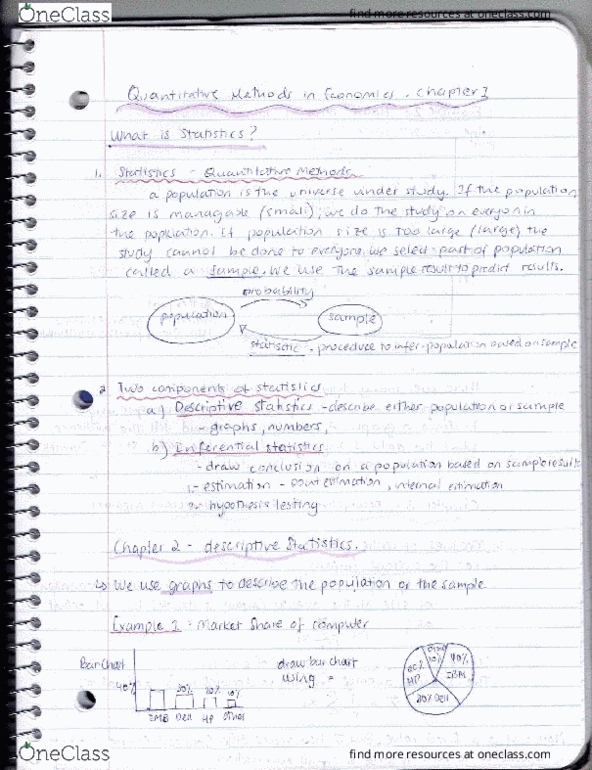 OneClass
find more resources at oneclass.com
Quantitative Methods in Economics. Chapter 1
What is Statistics?
1. Statistics - Quantitative Methods
a population is the universe under study. If the population
size is managable (small), we do the study on everyone in
the population. If population size is too large (large) the
study cannot be done to everyone, we select part of population
called a sample. We use the sample results to predict results.
probability
population
sample
statistic - procedure to infer population based on sample
2 Two components of statistics
a) Descriptive statistics - describe either population or sample
- graphs, numbers,
b) Inferential statistics
- draw conclusion on a population based on sample result
1- estimation - point estimation, internal estimation
2- hypothesis testing
Chapter 2 - descriptive Statistics.
↳ We use graphs to describe the population or the sample
Example 1 - Market Share of computer
Bar Chart
40%
20%
10%
Dell
HP
Other
draw bar chart
using =
10%
40%
IBM
HP
Dell
OneClass
find more resources at oneclass.com